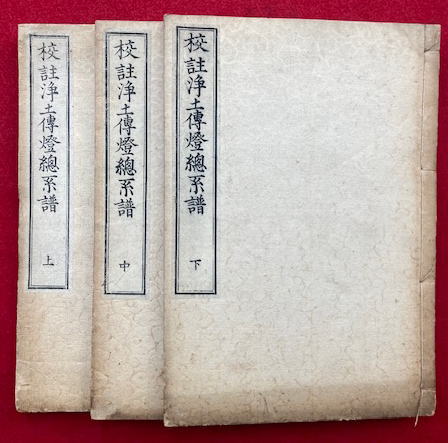 校註浄土傳燈總系譜 下
校註浄土傳燈總系譜 中
校註浄土傳燈總系譜 上